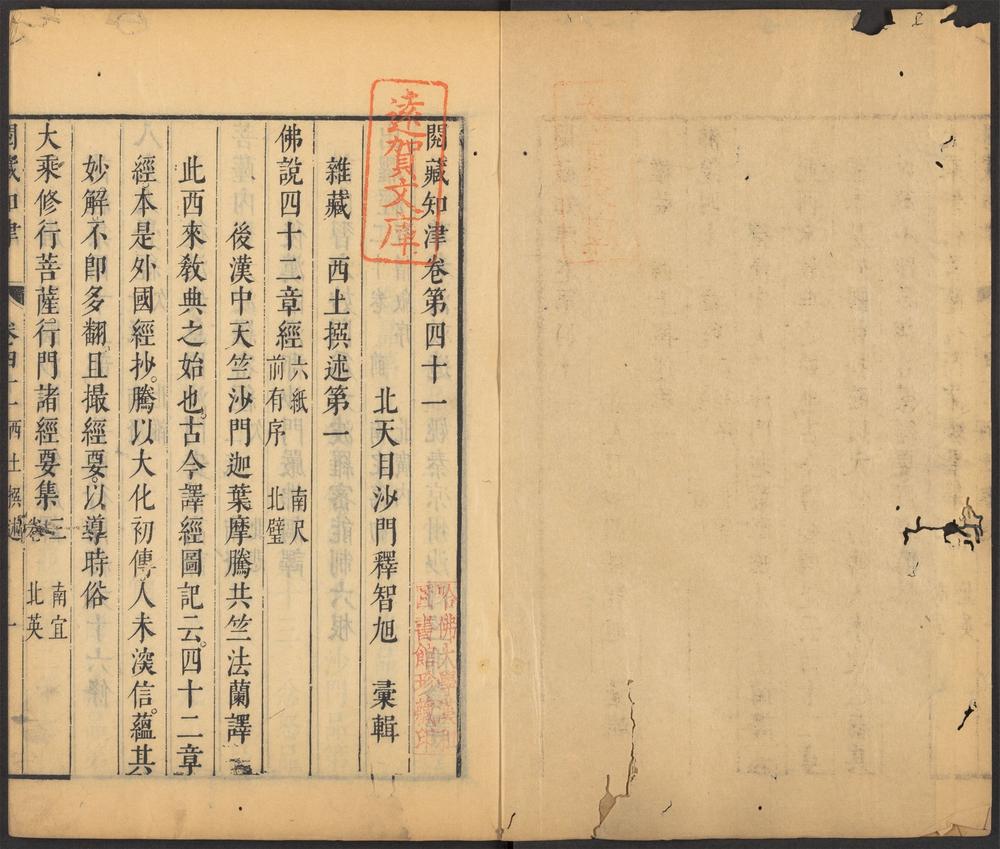 閱藏知津卷第四十一
北天目沙門釋智旭 彙輯
雜藏 西土撰述第一
佛說四十二章經 六紙 南尺
前有序 北璧
後漢中天竺沙門迦葉摩騰共竺法蘭譯
此西來教典之始也。古今譯經圖記云。四十二章
經本是外國經抄。騰以大化初傳。人未深信。蘊其
妙解。不卽多翻。且撮經要。以導時俗
大乘修行菩薩行門諸經要集 三 南宜
卷 北英
閱藏知津 卷四十一 西土撰述 一
遠賀文庫
哈佛大學漢和
圖書館珍藏印